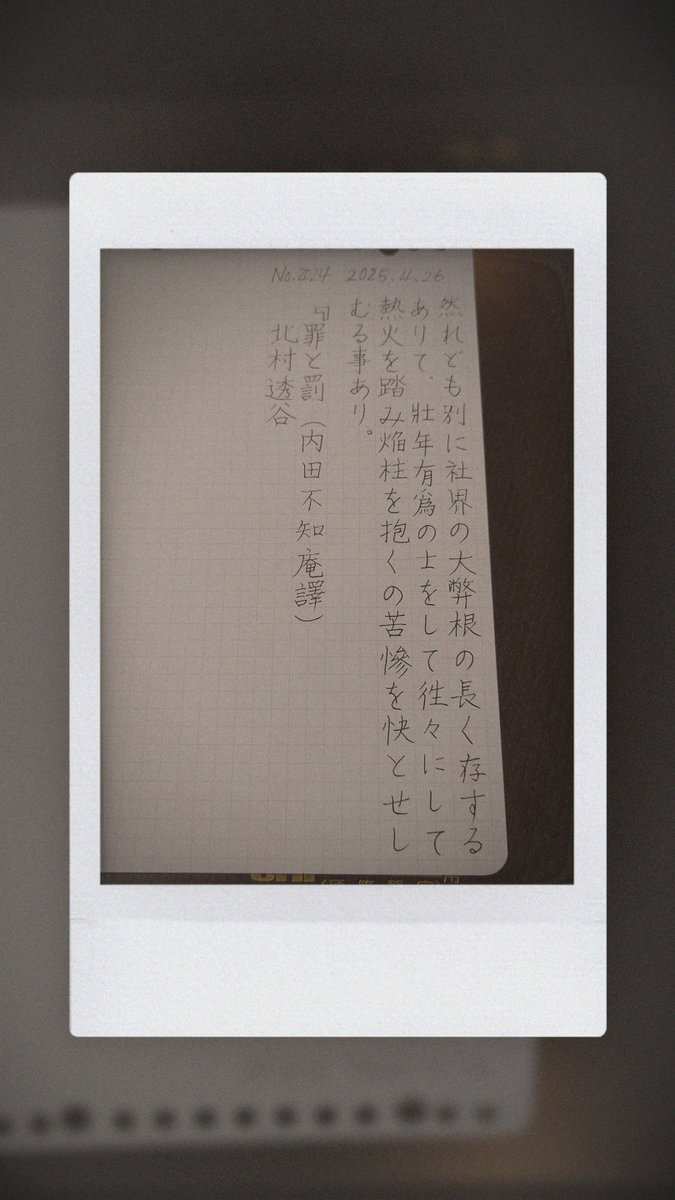 No.2024 2025.4.26
然れども別に社界の大弊根の長く存する
ありて、壯年有爲の士をして徃々にして
熱火を踏み焔柱を抱くの苦慘を快とせし
むる事あり。
『罪と罰(内田不知庵譯)
北村透谷